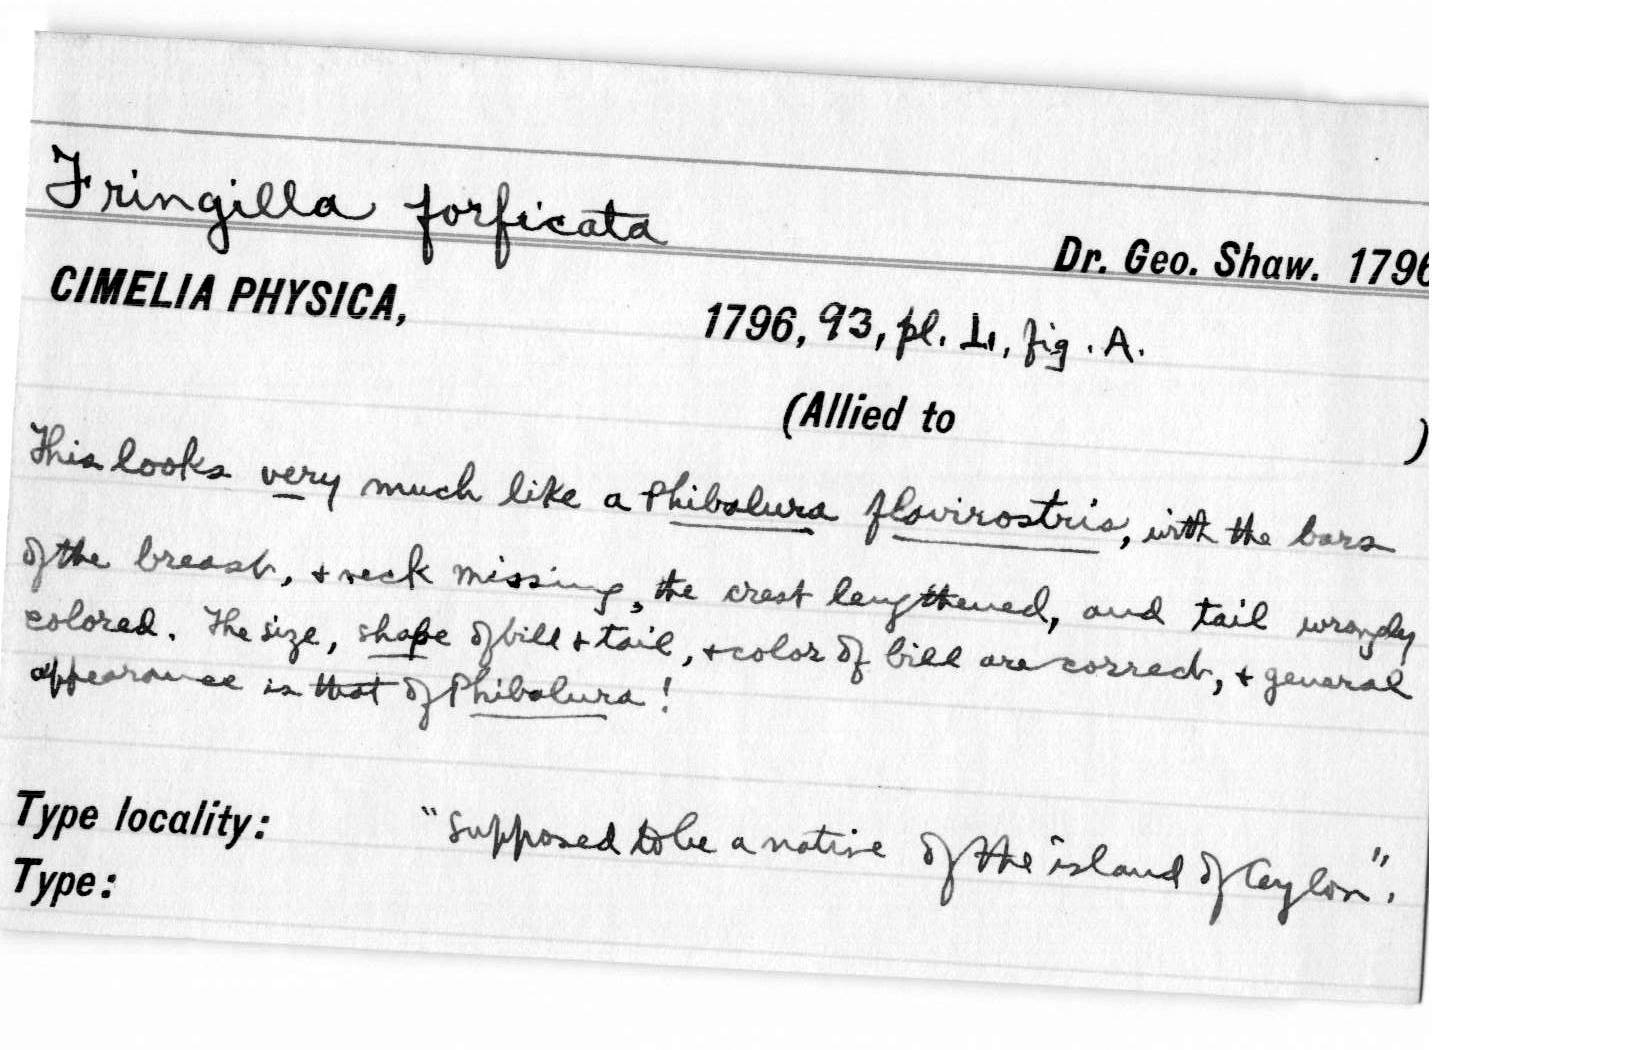 Fringilla forficata
Dr. Geo. Shaw. 1796
CIMELIA PHYSICA, 1796, 93, pl. L, fig. A.
(Allied to )
This looks very much like a Phibalura flavirostris, with the bars
of the breast, + neck missing, the crest lengthened, and tail wrongly
colored. The size, shape of bill + tail, + color of bill are correct, + general
appearance is that of Phibalura!
Type locality: "Supposed to be a native of the island of Ceylon".
Type: